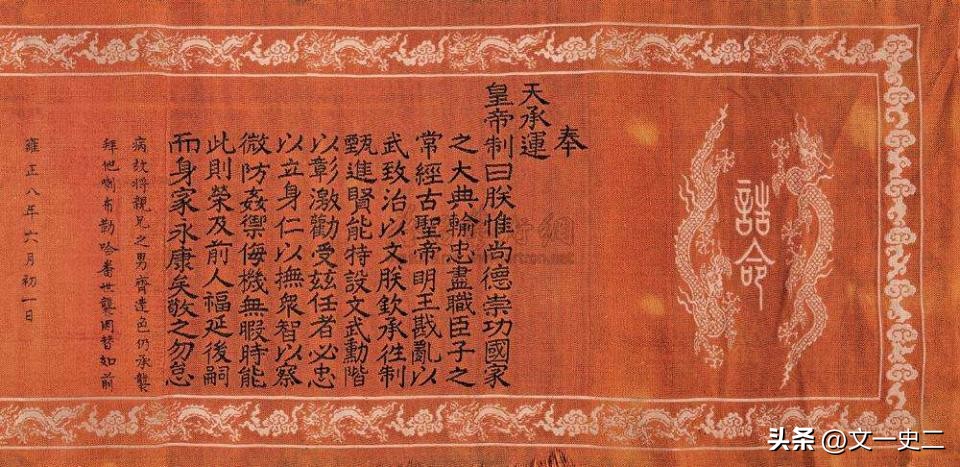 誥命
奉
天承運
皇帝制曰朕惟尚德崇功國家
之大典輸忠盡職臣子之
常經古聖帝明王戡亂以
武致治以文朕欽承往制
甄進賢能特設文武勳階
以彰激勸受茲任者必忠
以立身仁以撫衆智以察
微防姦禦侮機無暇時能
此則榮及前人福延後嗣
而身家永康矣敬之勿怠
病故將親兄之男齊達色仍承襲
拜他喇布勒哈番世襲罔替如前
雍正八年六月初一日
头条 @文一史二